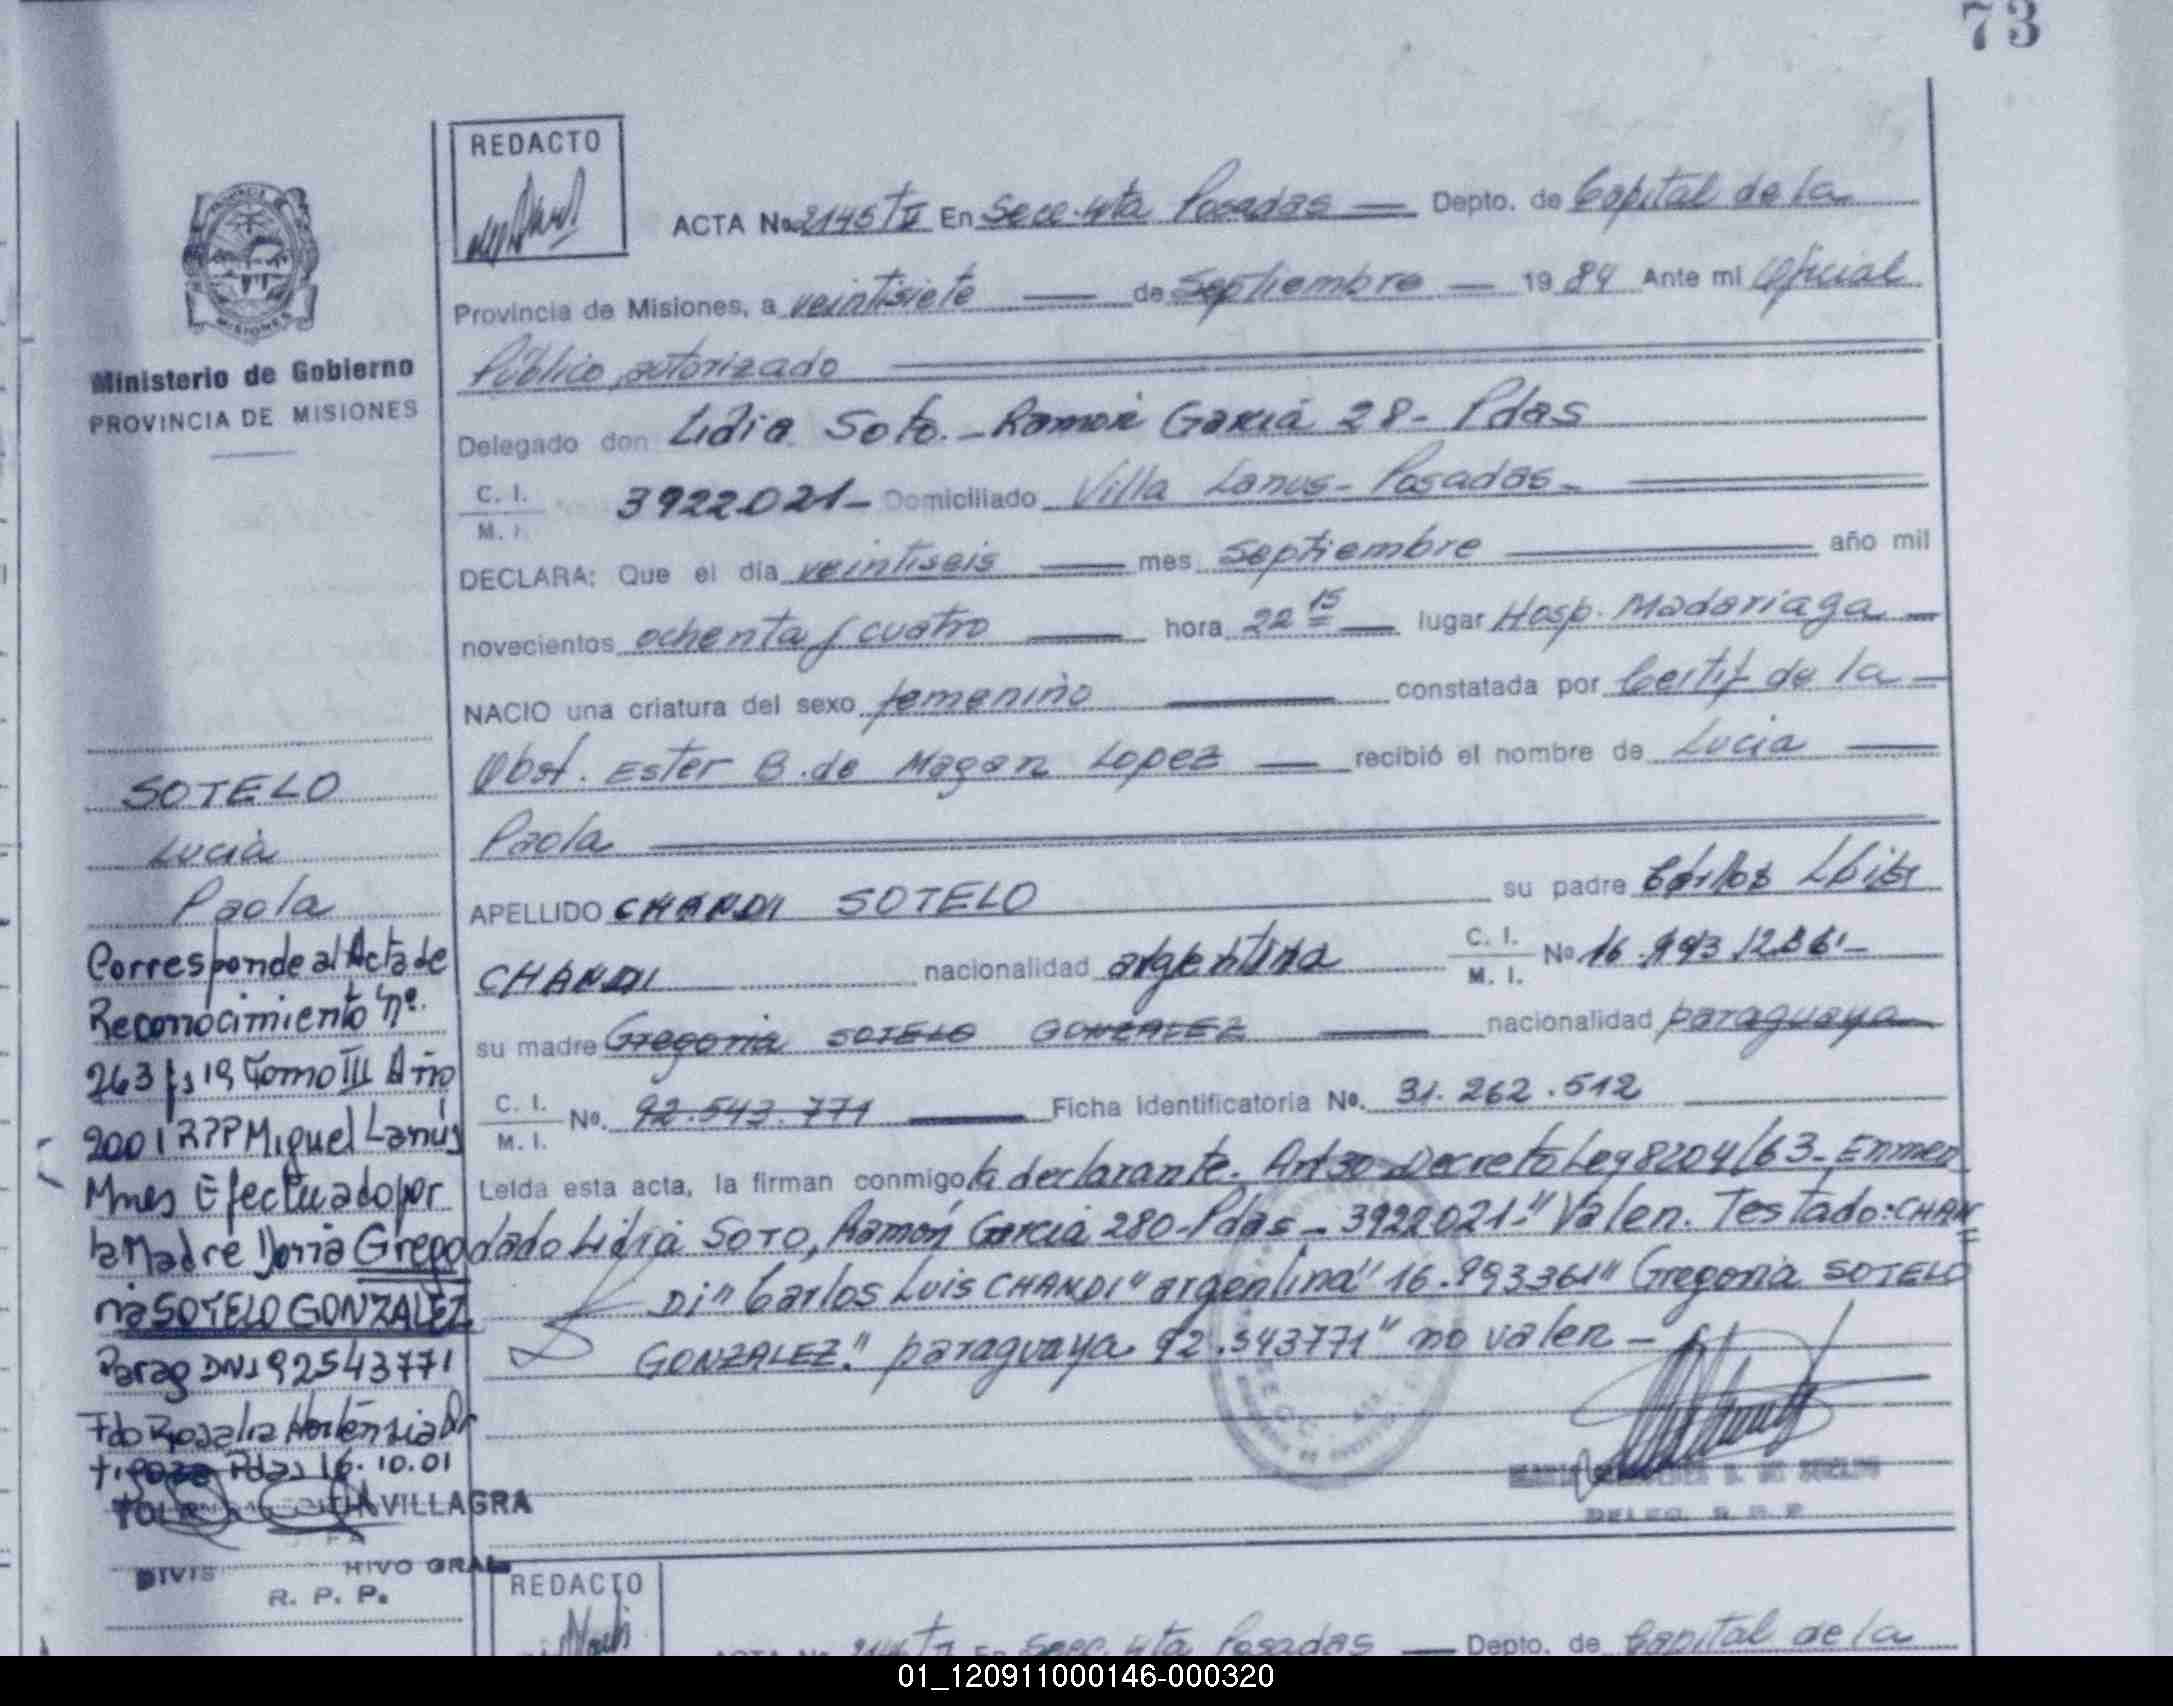 73
REDACTO
ACTA No 2145 TII En Secc. 4ta Posadas — Depto. de Capital de la
Provincia de Misiones, a veintisiete — de Septiembre — 1984 Ante mi Oficial
Público autorizado
Ministerio de Gobierno
PROVINCIA DE MISIONES
MISIONES
Delegado don Lidia Soto. - Ramón García 28 - Pdas
C. I.
M. I.
3922021 - Domiciliado Villa Lanus - Posadas -
DECLARA: Que el dia veintiseis — mes Septiembre — año mil
novecientos ochenta y cuatro — hora 22 15 — lugar Hosp. Madariaga —
NACIO una criatura del sexo femenino — constatada por Certif de la —
Obst. Ester B. de Magan Lopez — recibió el nombre de Lucia —
Paola
APELLIDO CHANDI SOTELO su padre Carlos Luis
CHANDI nacionalidad argentina C. I. M. I. No 16.993.361 -
su madre Gregoria SOTELO GONZALEZ — nacionalidad paraguaya
C. I. M. I. No. 92.543.771 — Ficha Identificatoria No. 31.262.512
Leida esta acta, la firman conmigo la declarante. Art 30 Decreto Ley 8204/63 - Enmen
dado Lidia SOTO, Ramón García 280 - Pdas - 3922021 -" Valen. Testado: CHAN
DI" Carlos Luis CHANDI" argentina" 16.993361" Gregoria SOTELO
GONZALEZ." paraguaya 92.543771" no valen -
SOTELO
Lucia
Paola
Corresponde al Acta de
Reconocimiento nº
263 fs 19 Tomo III Año
2001 RPP Miguel Lanús
Mnes Efectuado por
la Madre Doña Grego
ria SOTELO GONZALEZ
Parag DNI 92543771
Fdo Rosalia Hortensia
Pdas 16.10.01
VILLAGRA
R. P. P.
DELEG. R. R. P
REDACTO
Secc. 4ta Posadas — Depto. de Capital de la
01_120911000146-000320